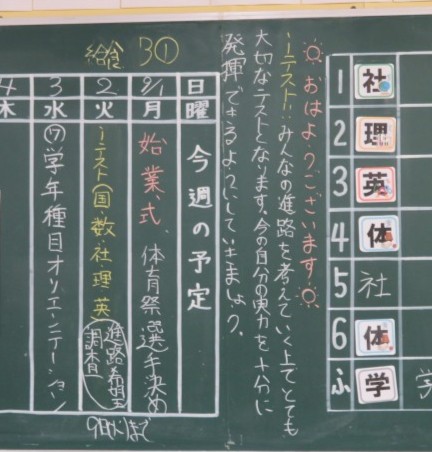 給食 3①
1 社
2 理
3 英
4 体
5 社
6 体
ふ 学
おはようございます
テスト!! みんなの進路を考えていく上でとても
大切なテストとなります。今の自分の実力を十分に
発揮できるようにしていきましょう。
今週の予定
日 曜
9/1 月 始業式 体育祭選手決め
2 火 テスト(国・数・社・理・英 進路希望調査
9日(火)まで
3 水 ⑦学年種目オリエンテーション
4 木